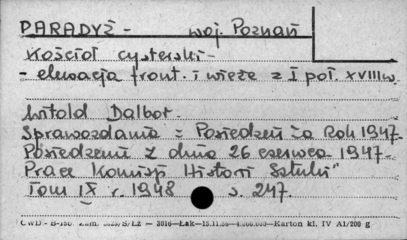 PARADYŻ - woj. Poznań
Kościół cysterski -
- elewacja front. i wieże z I poł. XVIII w.
Witold Dalbor.
Sprawozdania z Posiedzeń za Rok 1947.
Posiedzenia z dnia 26 czerwca 1947.
"Prace Komisji Historii Sztuki"
Tom IX r. 1948 s. 247.
CWD - B-750 Zam. S/Łż — 3016—Łak—15.11.55— —Karton kl. IV A1/200 g